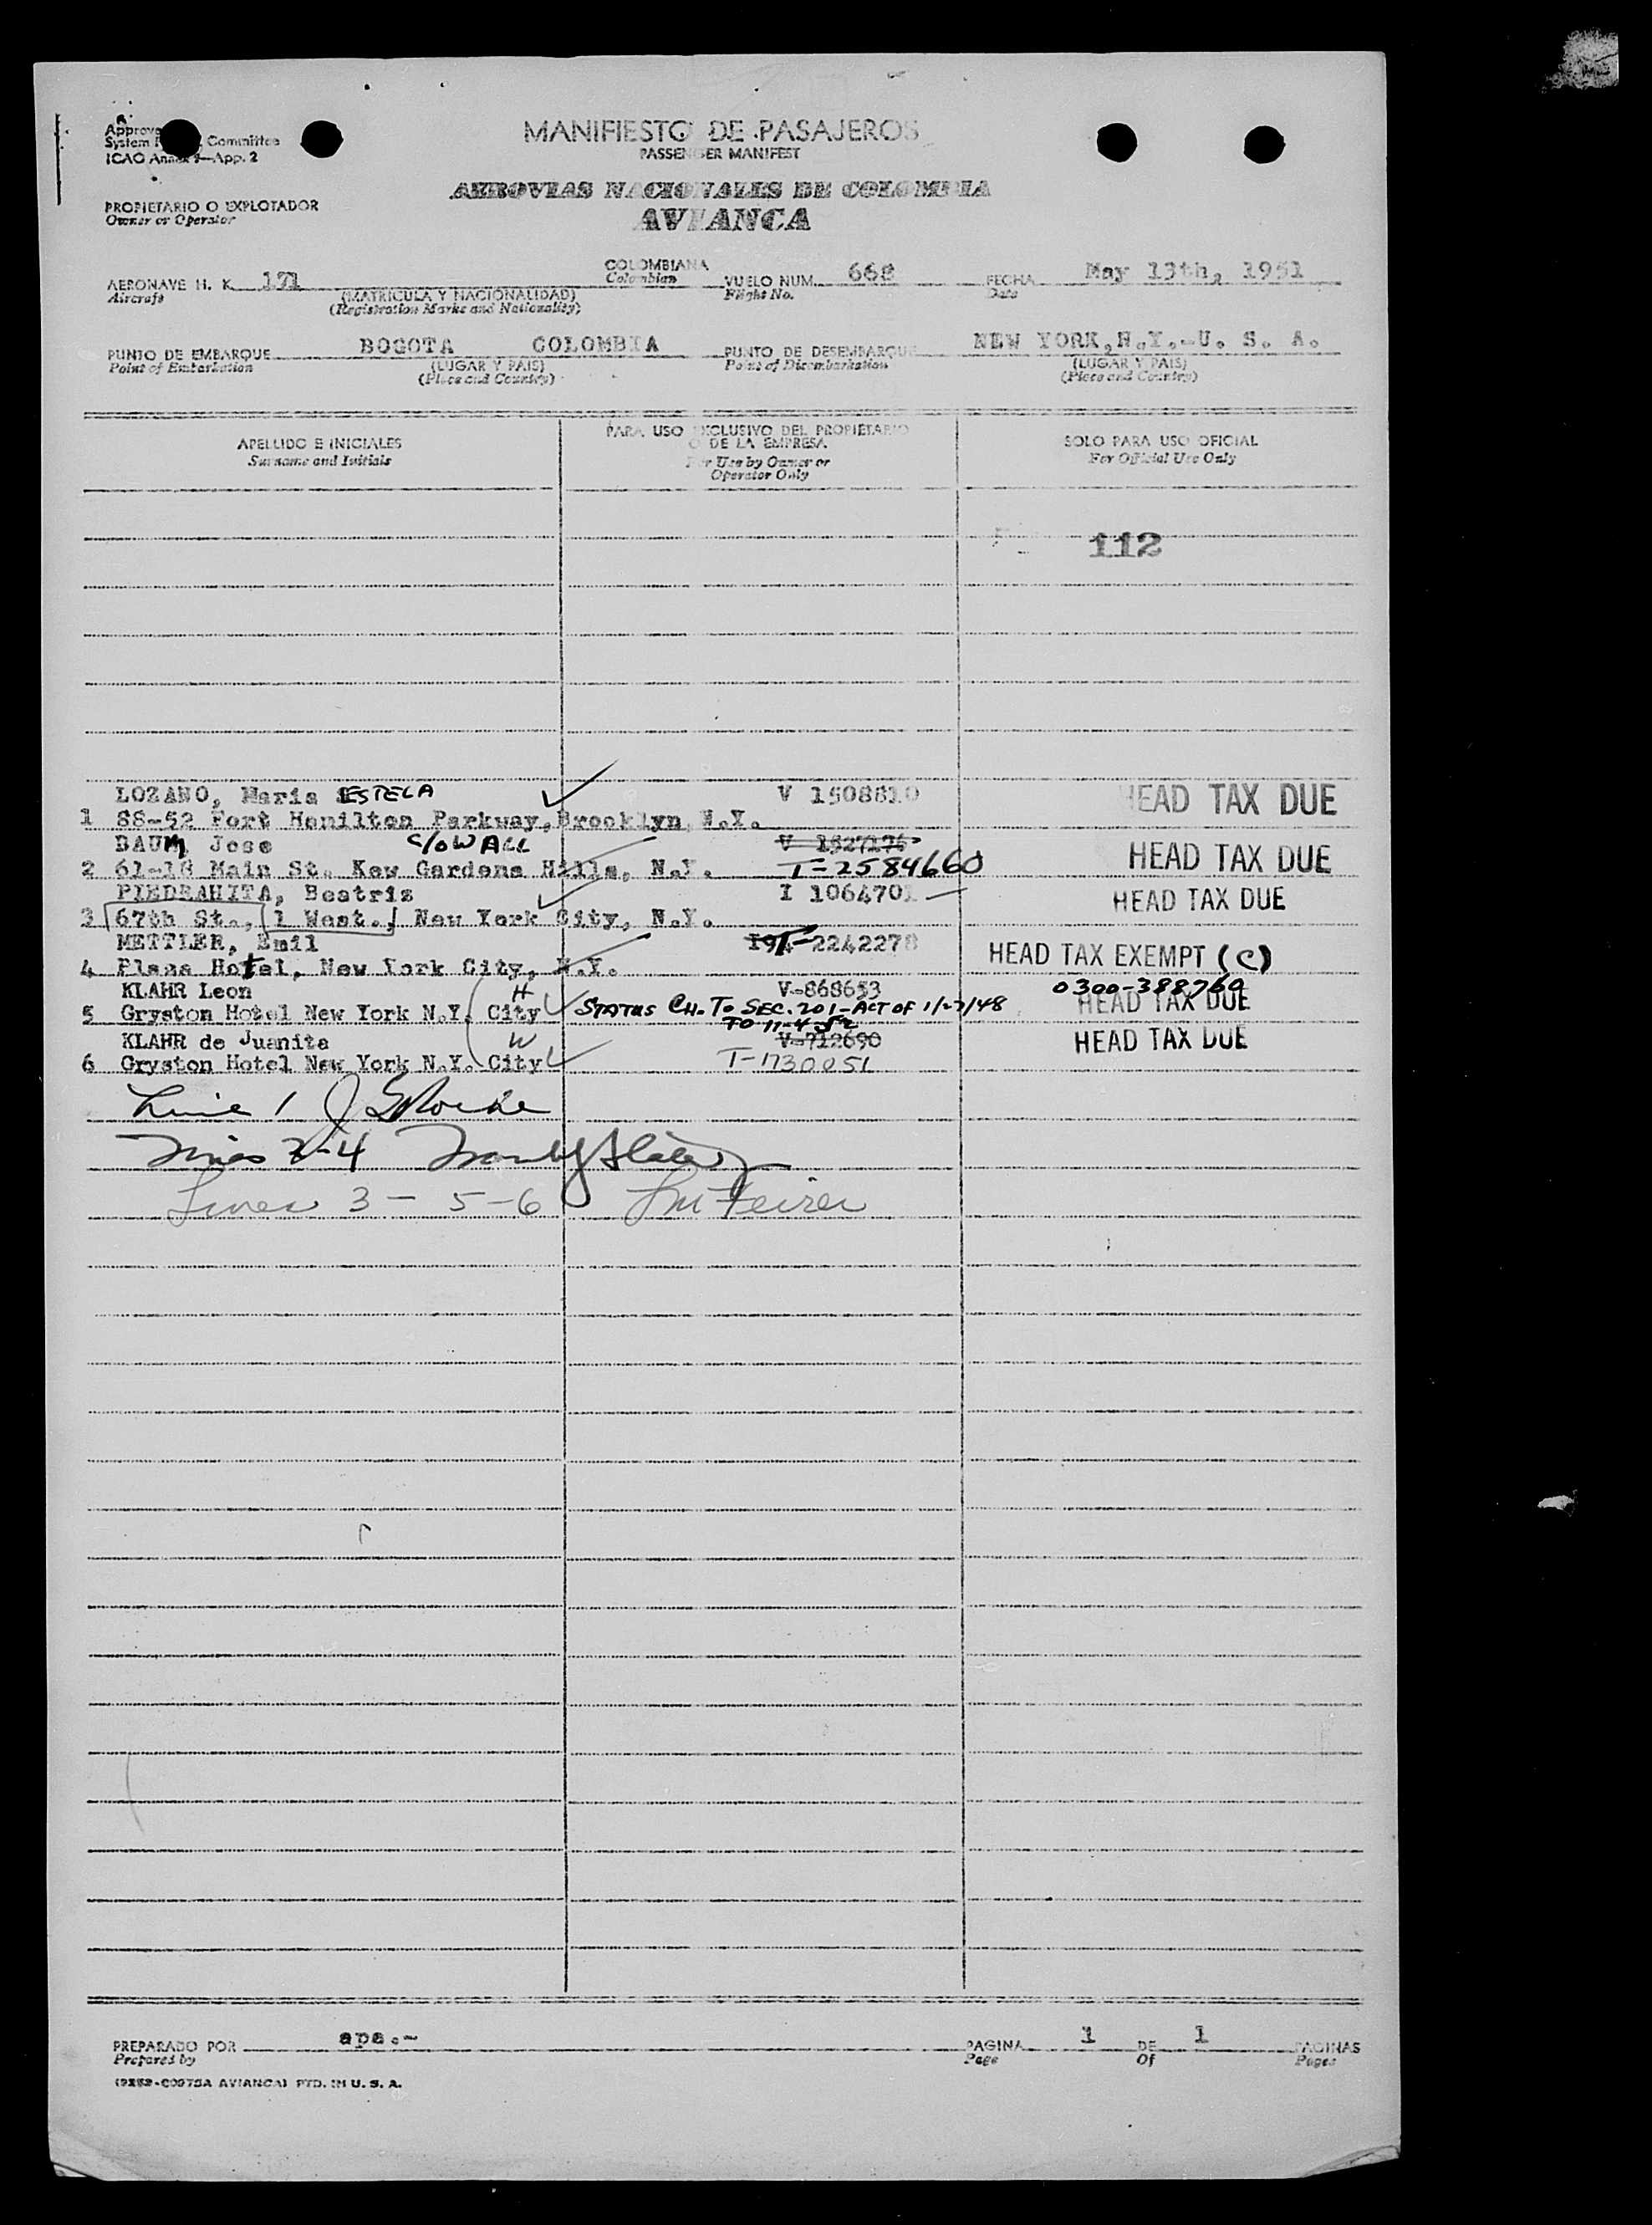 MANIFIESTO DE PASAJEROS
PASSENGER MANIFEST
System Committee
ICAO Annex 9—App. 2
AEROVIAS NACIONALES DE COLOMBIA
AVIANCA
PROPIETARIO O EXPLOTADOR
Owner or Operator
AERONAVE H. K. 171 COLOMBIANA VUELO NUM. 668 FECHA May 13th, 1951
Aircraft Colombian Flight No. Date
(MATRICULA Y NACIONALIDAD)
(Registration Marks and Nationality)
PUNTO DE EMBARQUE BOGOTA COLOMBIA PUNTO DE DESEMBARQUE NEW YORK, N.Y.-U. S. A.
Point of Embarkation (LUGAR Y PAIS) Point of Disembarkation (LUGAR Y PAIS)
(Place and Country) (Place and Country)
APELLIDO E INICIALES PARA USO EXCLUSIVO DEL PROPIETARIO SOLO PARA USO OFICIAL
Surname and Initials O DE LA EMPRESA For Official Use Only
For Use by Owner or
Operator Only
112
LOZANO, Maria ESTELA V 1508810 HEAD TAX DUE
1 88-52 Fort Hamilton Parkway, Brooklyn, N.Y.
BAUM, Jose C/O WALL V 1327176 HEAD TAX DUE
2 61-18 Main St. Kew Gardens Hills, N.Y. T-2584660
PIEDRAHITA, Beatriz I 1064701 HEAD TAX DUE
3 67th St., 1 West., New York City, N.Y.
METTLER, Emil T-2242278 HEAD TAX EXEMPT (C)
4 Plaza Hotel, New York City, N.Y.
KLAHR Leon H V-868653 0300-388760 HEAD TAX DUE
5 Gryston Hotel New York N.Y. City STATUS CH. TO SEC. 201-ACT OF 1/27/48
TO 11-4-52
KLAHR de Juanita W V-712690 HEAD TAX DUE
6 Gryston Hotel New York N.Y. City T-1730051
Line 1
Lines 2-4
Lines 3 - 5-6
PREPARADO POR apa.- PAGINA 1 DE 1 PAGINAS
Prepared by Page Of Pages
AVIANCA) PTD. IN U. S. A.